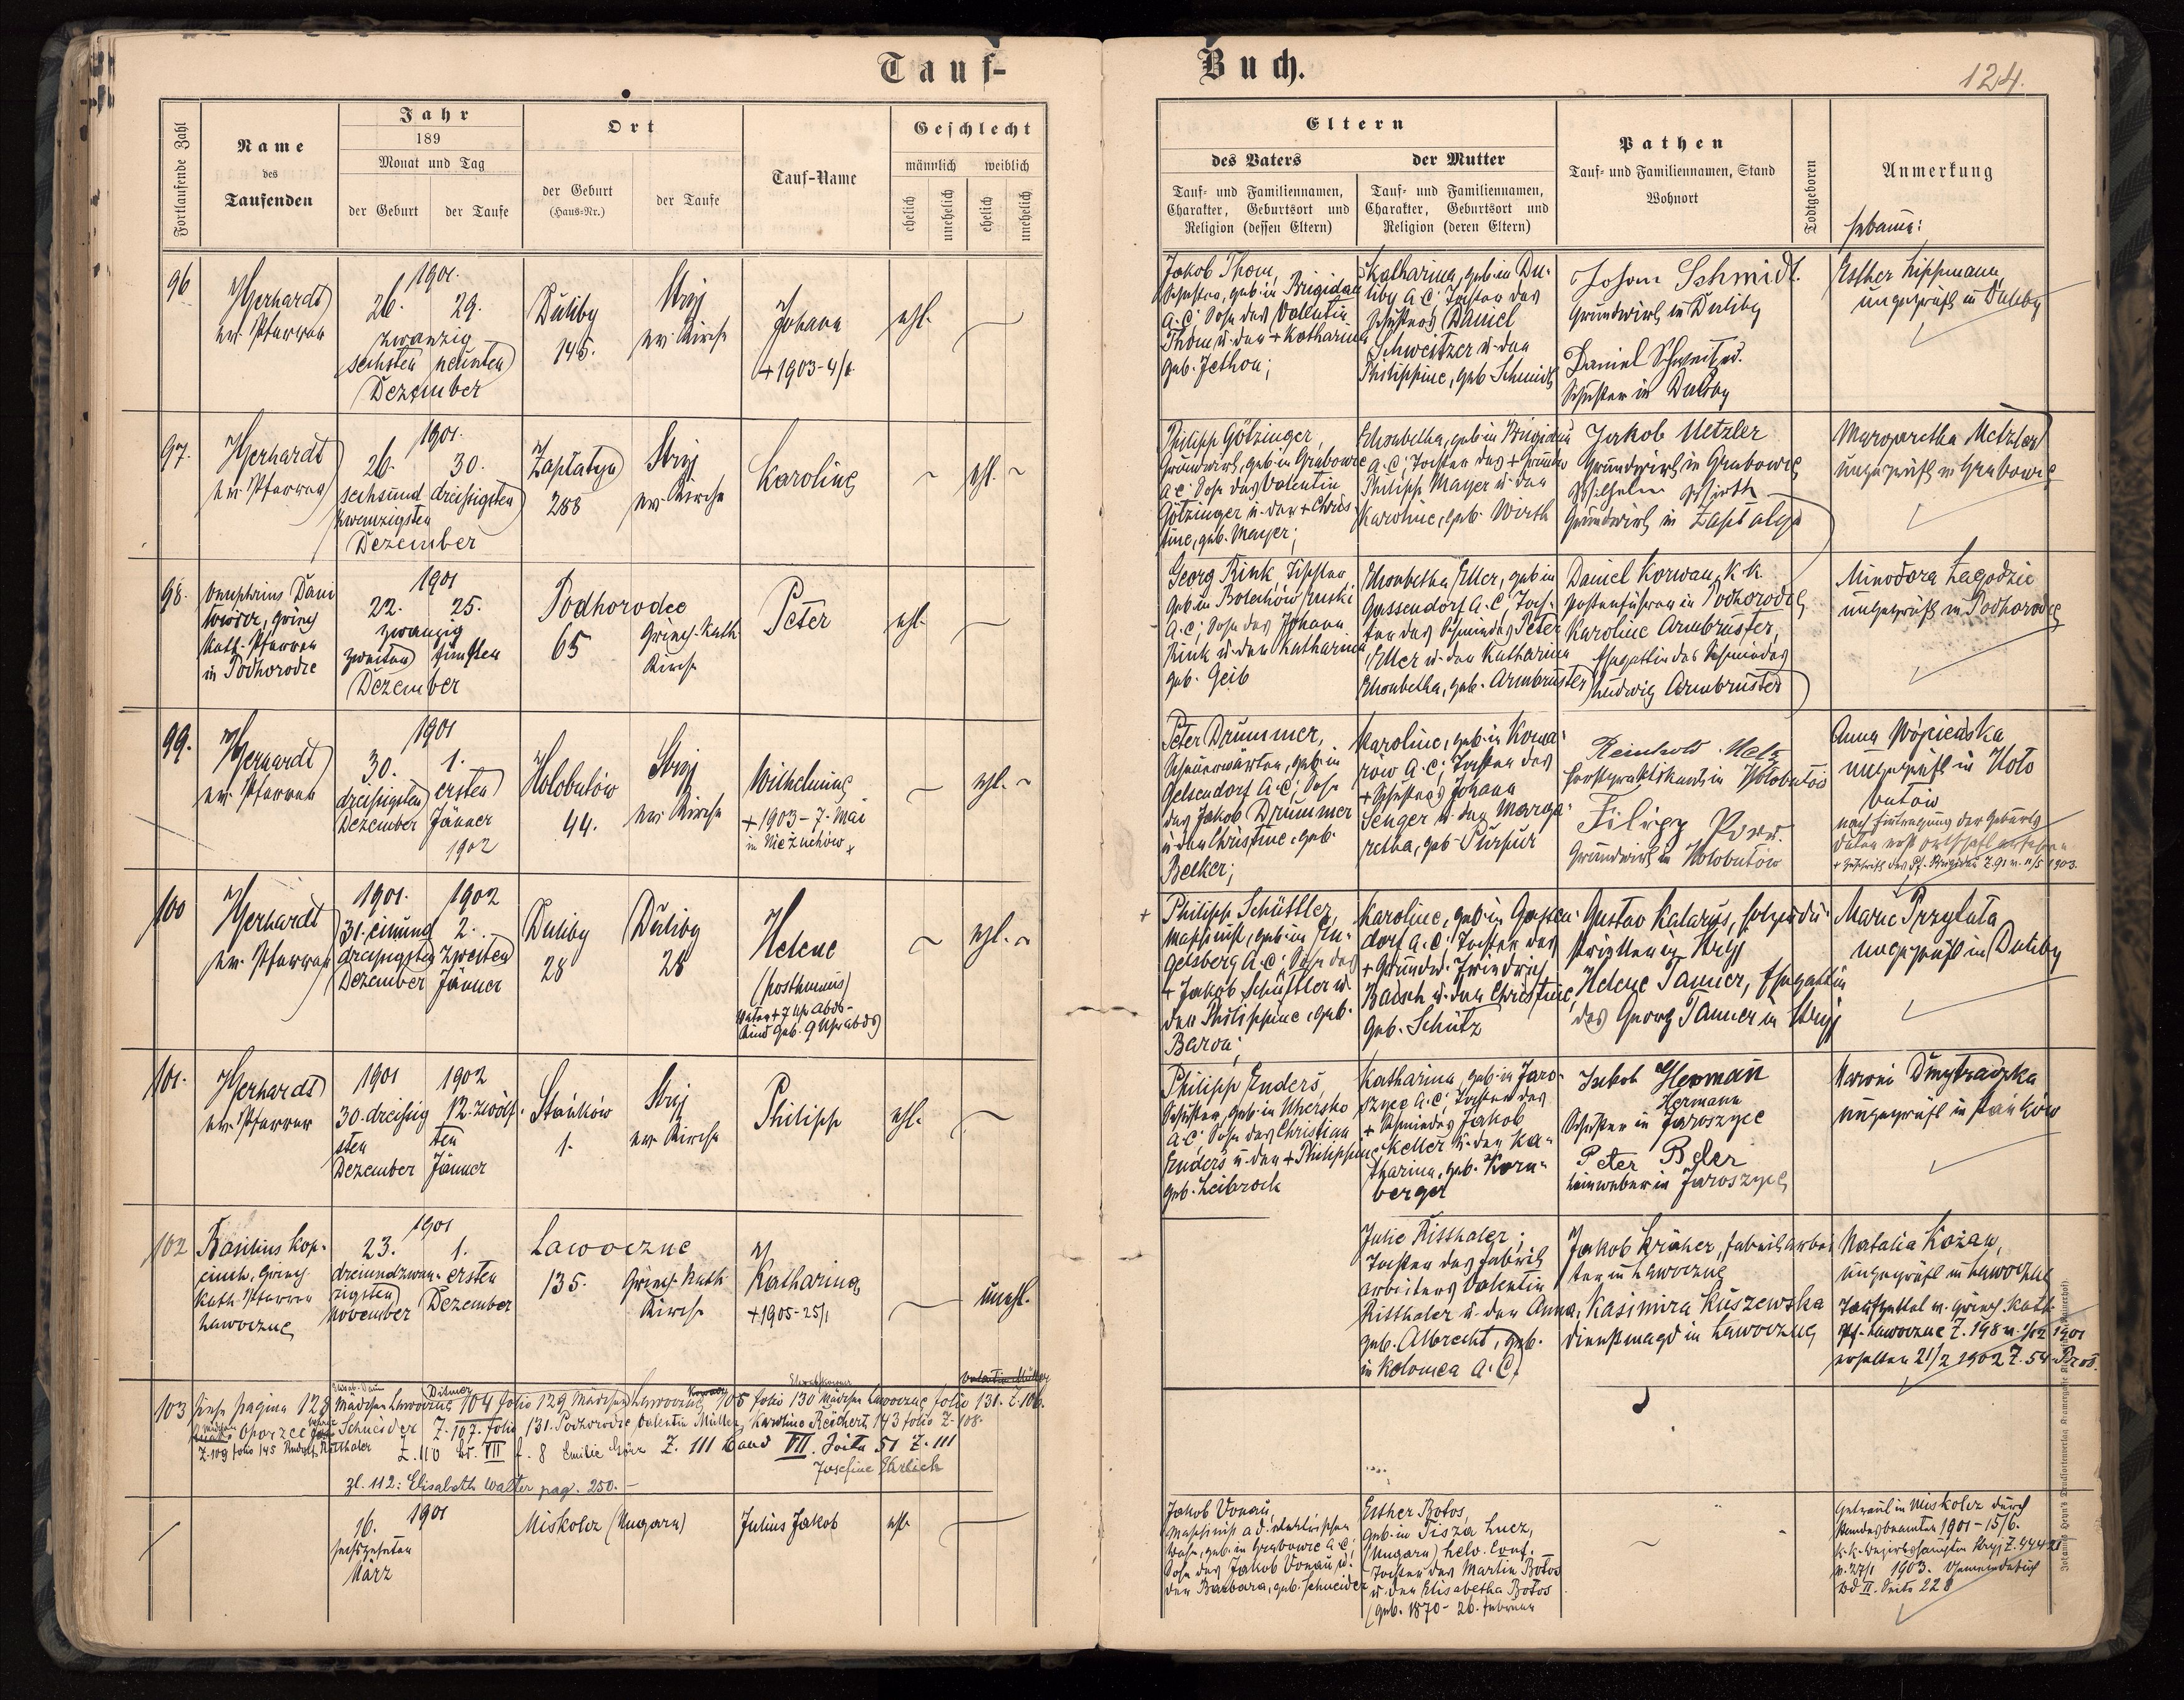 Tauf-
Buch.
124.
Fortlaufende Zahl
Name
des
Taufenden
Jahr
189
Monat und Tag
der Geburt
der Taufe
Ort
der Geburt
(Haus-Nr.)
der Taufe
Tauf-Name
Geschlecht
männlich
weiblich
ehelich
unehelich
ehelich
unehelich
Eltern
des Vaters
Tauf- und Familiennamen,
Charakter, Geburtsort und
Religion (dessen Eltern)
der Mutter
Tauf- und Familiennamen,
Charakter, Geburtsort und
Religion (deren Eltern)
Pathen
Tauf- und Familiennamen, Stand
Wohnort
Todtgeboren
Anmerkung
Hebamme:
96
Gerhardt
ev. Pfarrer
1901.
26. 29.
zwanzig
sechsten neunten
Dezember
Duliby
145.
Stryj
ev. Kirche
Johann
+ 1903-4/6
ehl.
Jakob Thom,
Schuster, geb. in Brigidau
A.C; Sohn des Valentin
Thom u. der + Katharina
geb. Jethon;
Katharina, geb. in Du-
liby A.C; Tochter des
Schusters Daniel
Schweitzer u. der
Philippine, geb. Schmidt
Johann Schmidt
Grundwirth in Duliby
Daniel Schweitzer
Schuster in Duliby
Esther Lippmann
ungeprüft in Duliby
97.
Gerhardt
ev. Pfarrer
1901.
26. 30.
sechsund dreissigsten
zwanzigsten
Dezember
Zaplatyn
288
Stryj
ev. Kirche
Karoline
ehl.
Philipp Götzinger,
Grundwirth, geb. in Grabowce
A.C. Sohn des Valentin
Götzinger u. der + Chris-
tine, geb. Mayer;
Elisabetha, geb. in Brigidau
A.C; Tochter des + Grundw.
Philipp Mayer u. der
Karoline, geb. Wirth
Jakob Metzler
Grundwirth in Grabowce
Wilhelm Wirth
Grundwirth in Zaplatyn
Margaretha Metzler
ungeprüft in Grabowce
98.
Onuphrius Dani
lowicz, griech.
kath. Pfarrer
in Podhorodce
1901
22. 25.
zwanzig
zweiten fünften
Dezember
Podhorodce
65
Griech. kath.
Kirche
Peter
ehl.
Georg Rink, Tischler,
geb. in Bolechów ruski
A.C; Sohn des Johann
Rink u. der Katharina
geb. Geib
Elisabetha Eller, geb. in
Gassendorf A.C; Toch-
ter des Schmiedes Peter
Eller u. der Katharina
Elisabetha, geb. Armbrüster
Daniel Korwan, K.K.
Postenführer in Podhorodce
Karoline Armbrüster,
Ehegattin des Schmiedes
Ludwig Armbrüster
Minodora Łagodzic
ungeprüft in Podhorodce
99.
Gerhardt
ev. Pfarrer
1901
30. 1.
dreissigsten ersten
Dezember Jänner
1902
Holobutów
44.
Stryj
ev. Kirche
Wilhelmine
+ 1903 - 7. Mai
in Nieżuchów
ehl.
Peter Drummer,
geb. in
Gelsendorf A.C; Sohn
des Jakob Drummer
u. der Christine, geb.
Belker;
Karoline, geb. in Koma-
rów A.C; Tochter des
+ Schusters Johann
Senger u. der Marga-
retha, geb. Purpur
Reinhold Metz
Forstpraktikant in Holobutów
Filip
Grundwirth in Holobutów
Anna Wójcicka
ungeprüft in Holo
butów
nach Eintragung der Geburts
daten erst
100
Gerhardt
ev. Pfarrer
1901. 1902
31. einund 2.
dreissigsten zweiten
Dezember Jänner
Duliby
28
Duliby
28
Helene
(posthumus)
Vater + 7 Uhr abds.
Kind geb. 9 Uhr abds)
ehl.
Philipp Schüttler,
Maschinist, geb. in En-
gelsberg A.C; Sohn des
+ Jakob Schüttler u.
der Philippine, geb.
Baron;
Karoline, geb. in Gassen-
dorf A.C; Tochter des
+ Grundw. Friedrich
Baisch u. der Christine,
geb. Schütz
Gustav Kalarus, Holzindu-
strieller in Stryj
Helene Tanner, Ehegattin
des Georg Tanner in Stryj
Marie Przyluta
ungeprüft in Duliby
101.
Gerhardt
ev. Pfarrer
1901 1902
30. dreissig 12. zwölf-
sten ten
Dezember Jänner
Stańków
1.
Stryj
ev. Kirche
Philipp
ehl.
Philipp Enders,
Schuster, geb. in Uhersko
A.C; Sohn des Christian
Enders u. der + Philippine
geb. Leibrock
Katharina, geb. in Jaro-
szyce A.C; Tochter des
+ Schmiedes Jakob
Keller u. der Ka-
tharina, geb. Korn-
berger
Jakob Herman
Hermann
Schuster in Jaroszyce
Peter Beler
Leinweber in Jaroszyce
ungeprüft in Stańków
102
Basilius Kop-
ciuch, griech.
kath. Pfarrer
Lawoczne
1901
23. 1.
dreiundzwan- ersten
zigsten
November Dezember
Lawoczne
135.
Griech. Kath.
Kirche
Katharina
+ 1905-25/1
unehl.
Julie Ritthaler;
Tochter des Fabriks
arbeiters Valentin
Ritthaler u. der Anna,
geb. Albrecht, geb.
in Kolomea A.C.
Jakob Kräher, Fabriksarbei
ter in Lawoczne
Kasimira Kuszewska
Dienstmagd in Lawoczne
Natalia Kożan,
ungeprüft in Lawoczne
Taufzettel v. griech. kath.
Pf. Lawoczne Z. 198 v. 1/12 1901
erhalten 21/2 1902 Z. 54 Pros.
103 Siehe pagina 128 Mädchen Lawoczne 104 folio 129 Mädchen Lawoczne 105 folio 130 Mädchen Lawoczne folio 131. Z. 106.
Oporzec Schneider Z. 107. folio 131. Podhorodce Valentin Müller, Karoline Reichert 143 folio Z. 108.
Z. 109 folio 145 Rudolf Ritthaler Z. 110 Bd. VII f. 8 Emilie Görz Z. 111 Band VII. Seite 51 Z. 111
Josefine Ehrlich
Zl. 112: Elisabeth Walter pag. 250. -
1901
16.
sechszehnten
März
Miskolcz (Ungarn)
Julius Jakob
ehl.
Jakob Vonau,
Maschinist a. d.
Bahn, geb. in Grabowce A.C;
Sohn des Jakob Vonau u.
der Barbara, geb. Schneider
Esther Botos,
geb. in Tisza Lucz,
(Ungarn) helv. Conf.
Tochter des Martin Botos
u. der Elisabetha Botos
(geb. 1870 - 26. Februar
Getraut in Miskolcz durch
Standesbeamten 1901 - 15/6.
1903. Gemeindebuch
Bd II. Seite 228